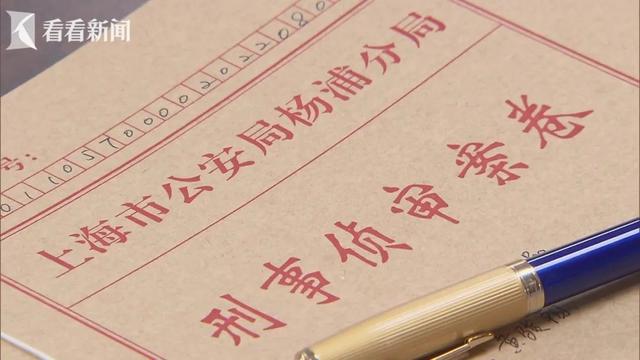 看看新闻
号：
01105700002022080
上海市公安局杨浦分局
刑事侦审案卷